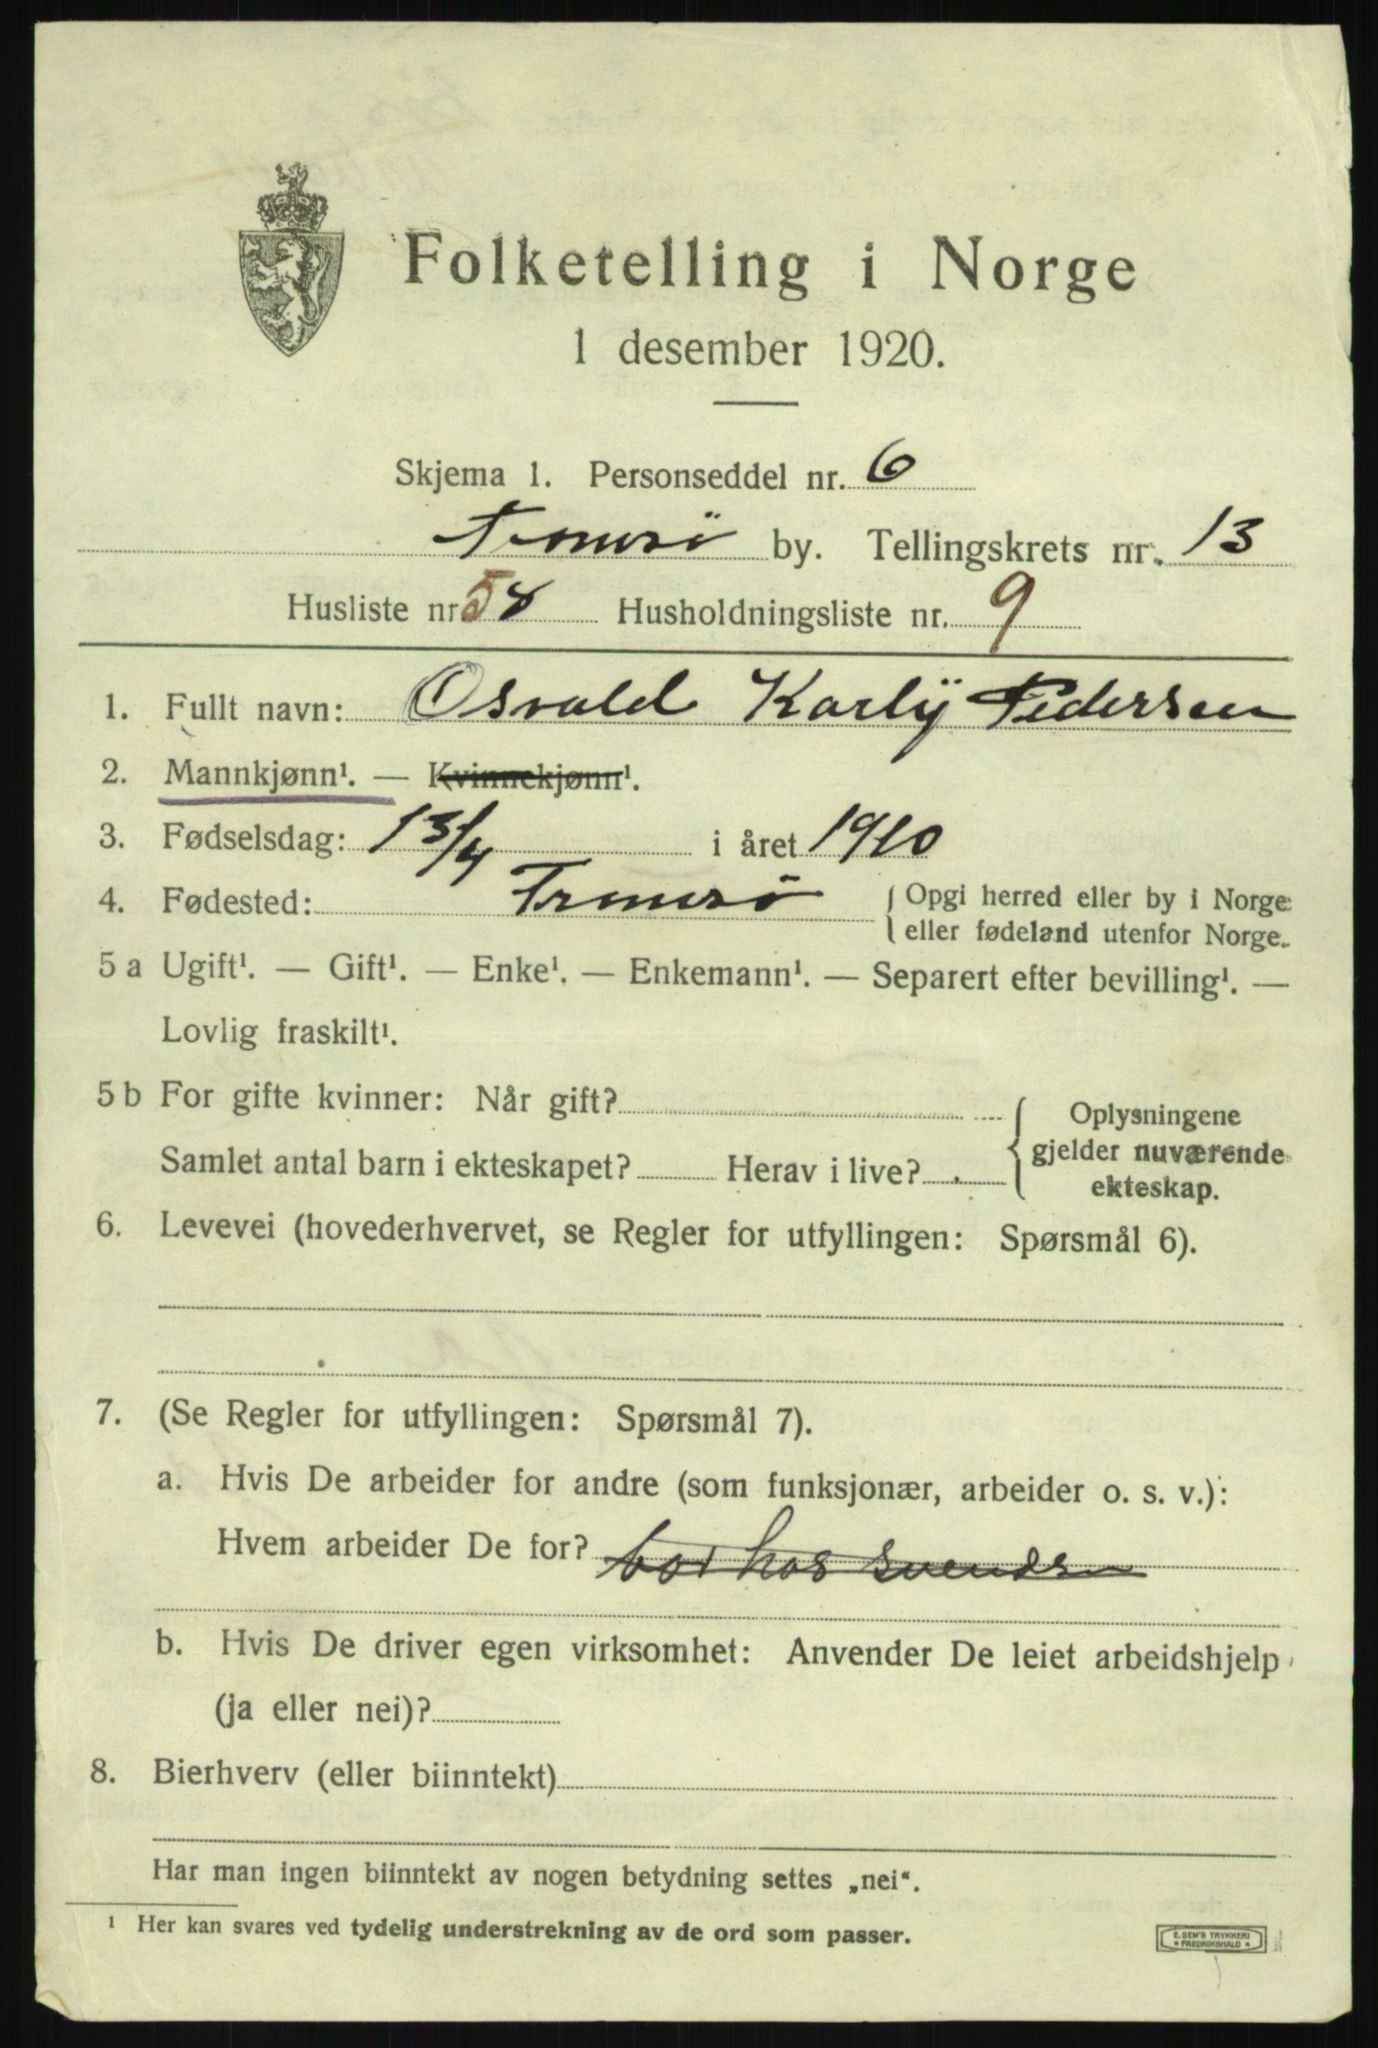 Folketelling i Norge
1 desember 1920.
Skjema 1. Personseddel nr. 6
Tromsö by. Tellingskrets nr. 13
Husliste nr. 58 Husholdningsliste nr. 9
1. Fullt navn: Osvald Karly Pedersen
2. Mannkjønn¹. — Kvinnekjønn¹.
3. Fødselsdag: 13/4 i året 1910
4. Fødested: Tromsö { Opgi herred eller by i Norge
eller fødeland utenfor Norge.
5 a Ugift¹. — Gift¹. — Enke¹. — Enkemann¹. — Separert efter bevilling¹. —
Lovlig fraskilt¹.
5 b For gifte kvinner: Når gift?
Samlet antal barn i ekteskapet? Herav i live?
{ Oplysningene
gjelder nuværende
ekteskap.
6. Levevei (hovederhvervet, se Regler for utfyllingen: Spørsmål 6).
7. (Se Regler for utfyllingen: Spørsmål 7).
a. Hvis De arbeider for andre (som funksjonær, arbeider o. s. v.):
Hvem arbeider De for? bor hos svendsen
b. Hvis De driver egen virksomhet: Anvender De leiet arbeidshjelp
(ja eller nei)?
8. Bierhverv (eller biinntekt)
Har man ingen biinntekt av nogen betydning settes „nei“.
¹ Her kan svares ved tydelig understrekning av de ord som passer.
E. SEM'S TRYKKERI
• FREDRIKSHALD •